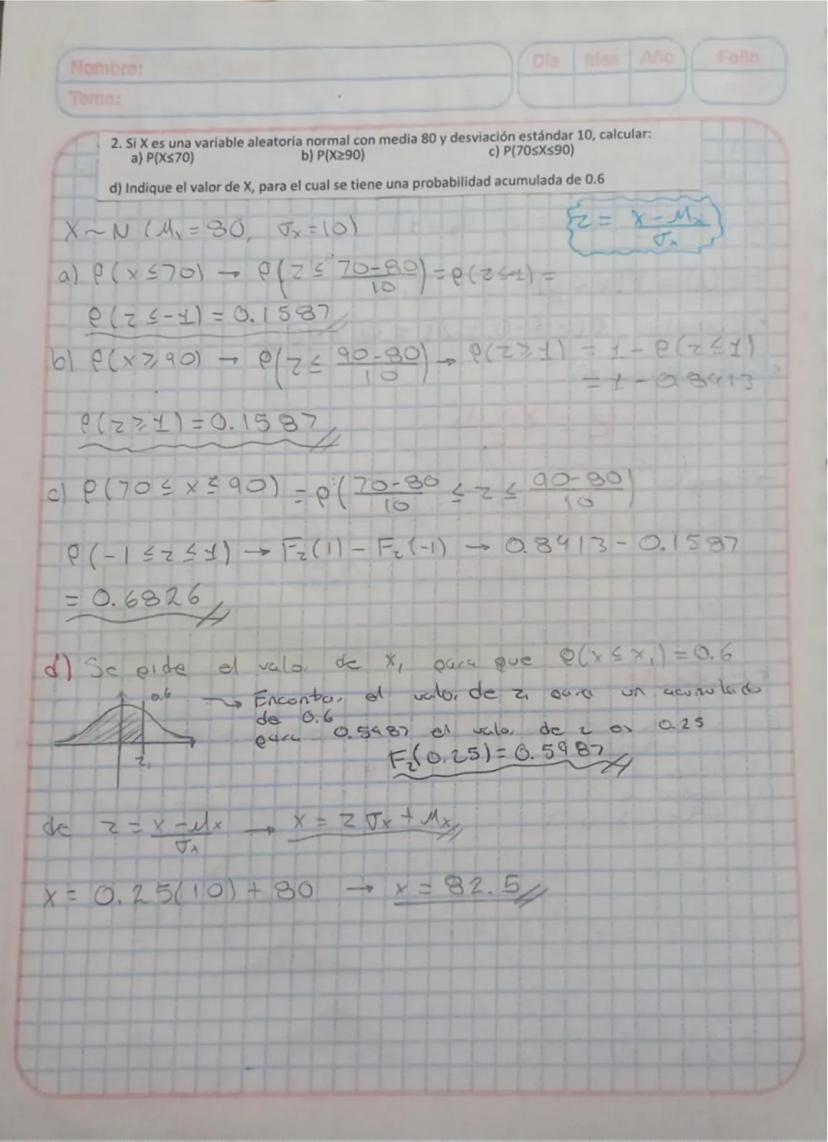 Nombre:
Día Mes Año Folio
Tema:
2. Si X es una variable aleatoria normal con media 80 y desviación estándar 10, calcular:
a) P(X≤70) b) P(X≥90) c) P(70≤X≤90)
d) Indique el valor de X, para el cual se tiene una probabilidad acumulada de 0.6
X~N (Mx = 80, σx = 10)
z = (x - Mx)/σx
a) P(x ≤ 70) → P(z ≤ (70-80)/10) = P(z ≤ -1) =
P(z ≤ -1) = 0.1587
b) P(x ≥ 90) → P(z ≤ (90-80)/10) → P(z ≥ 1) = 1 - P(z ≤ 1)
= 1 - 0.8413
P(z ≥ 1) = 0.1587
c) P(70 ≤ x ≤ 90) = P((70-80)/10 ≤ z ≤ (90-80)/10)
P(-1 ≤ z ≤ 1) → Fz(1) - Fz(-1) → 0.8413 - 0.1587
= 0.6826
d) Se pide el valor de x₁ para que P(x ≤ x₁) = 0.6
0.6 → Encontrar el valor de z₁ para un acumulado
de 0.6
para 0.5987 el valor de z es 0.25
z₁
Fz(0.25) = 0.5987
de z = (x - Mx)/σx → x = z σx + Mx
x = 0.25(10) + 80 → x = 82.5